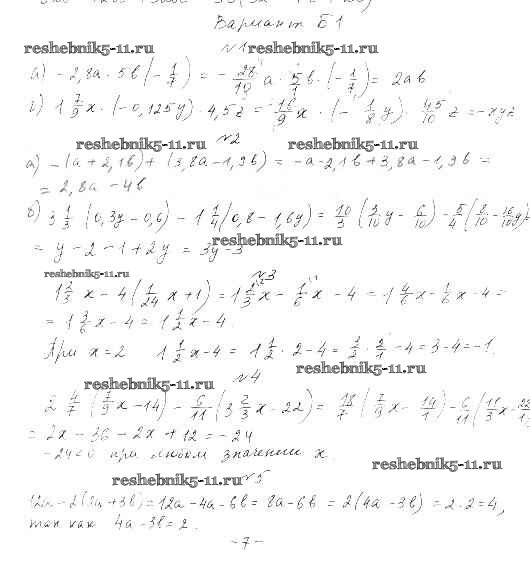 Вариант Б1
reshebnik5-11.ru №1 reshebnik5-11.ru
а) -2,8a · 5b (-1/7) = -28/10 a · 5b · (-1/7) = 2ab
1 7/9 x · (-0,125y) · 4,5z = -16/9 x · (-1/8 y) · 45/10 z = -xyz
reshebnik5-11.ru №2 reshebnik5-11.ru
а) -(a + 2,1b) + (3,8a - 1,9b) = -a - 2,1b + 3,8a - 1,9b =
= 2,8a - 4b
б) 3 1/3 (0,3y - 0,6) - 1 1/4 (0,8 - 1,6y) = 10/3 (3/10 y - 6/10) - 5/4 (8/10 - 16/10 y) =
= y - 2 - 1 + 2y = 3y - 3 reshebnik5-11.ru
reshebnik5-11.ru №3
1 2/3 x - 4 (1/24 x + 1) = 1 2/3 x - 1/6 x - 4 = 1 4/6 x - 1/6 x - 4 =
= 1 3/6 x - 4 = 1 1/2 x - 4.
При x = 2 1 1/2 x - 4 = 1 1/2 · 2 - 4 = 3/2 · 2/1 - 4 = 3 - 4 = -1.
reshebnik5-11.ru №4 reshebnik5-11.ru
2 4/7 (7/9 x - 14) - 6/11 (3 2/3 x - 22) = 18/7 (7/9 x - 14/1) - 6/11 (11/3 x - 22/1)
= 2x - 36 - 2x + 12 = -24
-24 < 0 при любом значении x.
reshebnik5-11.ru №5 reshebnik5-11.ru
12a - 2(2a + 3b) = 12a - 4a - 6b = 8a - 6b = 2(4a - 3b) = 2 · 2 = 4,
так как 4a - 3b = 2.
- 7 -